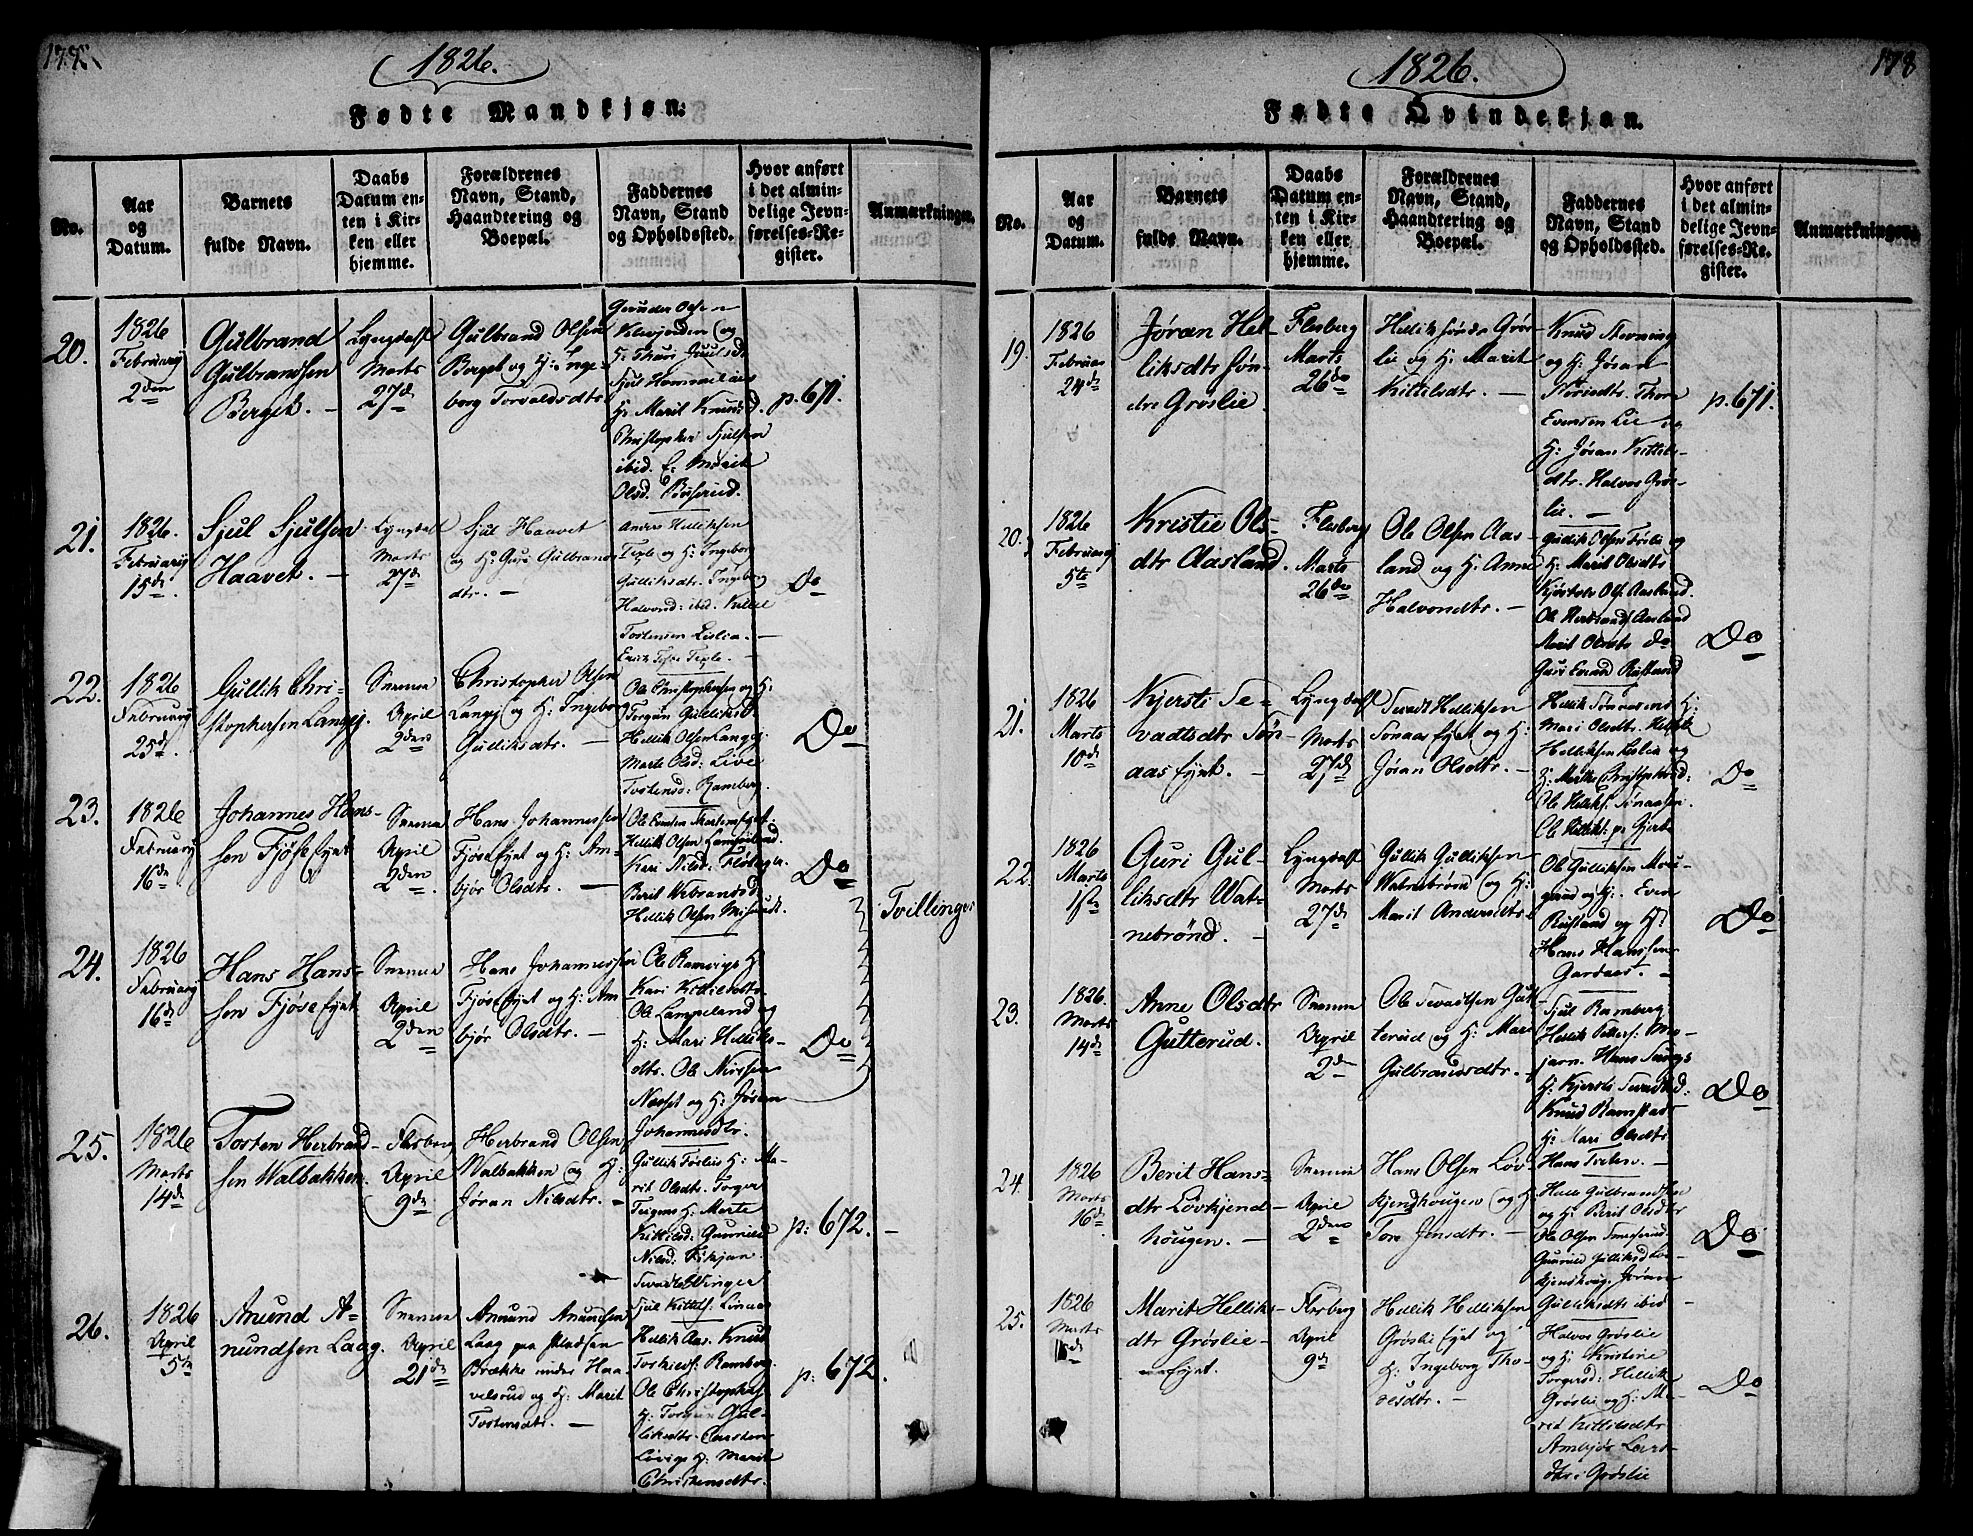 177.
1826.
Fødte Mandkjøn:
No.
Aar
og
Datum.
Barnets
fulde Navn.
Daabs
Datum en-
ten i Kir-
ken eller
hjemme.
Forældrenes
Navn, Stand,
Haandtering og
Boepæl.
Faddernes
Navn, Stand
og Opholdssted.
Hvor anført
i det almin-
delige Jevn-
førelses-Re-
gister.
Anmærkninger.
20.
1826
Februarij
2den
Gulbrand
Gulbrandsen
Berget. –
Lyngdal
Marts
27de
Gulbrand Olsen
Berget og H: Inge-
borg Torvaldsdtr.
H: Marit Knudsd.
Christopher Sjulsen
ibid. E: Marit
Olsd.
p. 671.
21.
1826.
Februarij
15de.
Sjul Sjulsen
Haavet. –
Lyngdal
Marts
27de
Sjul Haavet
og H: Guri Gulbrands
dtr. –
Anders Helliksen
Teple og H: Ingeborg
Gulliksdtr. Ingeborg
Halvorsd: ibid. Kittel
Tostensen Lislia. –
Teple. –
Do
22.
1826
Februarij
25de.
Gullik Chri-
stophersen Langej.
Svenne
April
2den
Christopher Olsen
Langej og H: Ingeborg
Gulliksdtr. –
Ole Christophersen og H:
Torgun Gulliksd.
Hellik Olsen Langej.
Marte Olsd: Live
Tostensd: Ramberg.
Do
23.
1826
Februarij
16de
Johannes Hans-
sen Fjøse Ejnt
Svenne
April
2den.
Hans Johannessen
Fjøse Ejnt og H: Am-
bjør Olsdtr. –
Hellik Olsen
Kari Nilsd.
Berit
Hellik Olsen
Do
Tvillinger
24.
1826
Februarij
16de
Hans Hans-
sen Fjøse Ejnt
Svenne
April
2den
Hans Johannessen
Fjøse Ejnt og H: Am-
bjør Olsdtr. –
Ole Ramvigs H:
Kari Kittilsdtr.
Ole Lampeland og
H: Mari Helliks-
dtr. Ole Nirisen
Næset og H: Jøran
Johannesdtr.
Do
25.
1826
Marts
14de
Tosten Herbrand-
sen Walbakken.
Flesberg
April
9de
Herbrand Olsen
Walbakken og H:
Jøran Nilsdtr. –
Gullik Førlies H: Ma-
rit Olsdtr. Torger
H: Marte
Kittilsd: Gunnild
Nilsd:
p: 672. –
26.
1826
April
5te
Anund A-
nundsen Laag.
Svenne
April
21de
Anund Anundsen
Laag paa Pladsen
Brække under Haa-
velsrud og H: Marit
Tostensdtr. –
Hellik Aas. Knud
Ramberg.
Ole Christophers.
H: Torgun Gul-
liksdtr.
H: Marit
Christensdtr.
p: 672.
178
1826.
Fødte Qvindekjøn.
No.
Aar
og
Datum.
Barnets
fulde Navn.
Daabs
Datum en-
ten i Kir-
ken eller
hjemme.
Forældrenes
Navn, Stand,
Haandtering og
Boepæl.
Faddernes
Navn, Stand
og Opholdssted.
Hvor anført
i det almin-
delige Jevn-
førelses-Re-
gister.
Anmærkninger.
19.
1826
Februar
24de
Jøran Hel-
liksdtr søn-
dre Grøslie.
Flesberg
Marts
26de
Hellik søndre Grøs-
lie og H: Marit
Kittelsdtr. –
Knud
og H: Jøran
Thore
Evensen Lie og
H: Jøran Kittels-
dtr. Halvor Grøs-
lie. –
p. 671.
20.
1826
Februarij
5te
Kristie Ols-
dtr Aasland.
Flesberg
Marts
26de
Ole Olsen Aas-
land og H: Anne
Halvorsdtr. –
Gullik Olsen Førlie og
H: Marit Olsdtr
Ole Herbrands. Aasland
Marit Olsdtr Do
Do
21.
1826
Marts
10de
Kjersti Te-
vadtsdtr Tøn-
aas Ejnt. –
Lyngdal
Marts
27de
Tevadt Helliksen
Tønaas Ejnt og H:
Jøran Olsdtr. –
Hellik Tønaasens H:
Mari Olsdtr.
Helliksen Leslia og
Ole Helliks. Tønaasen.
Do
22.
1826
Marts
1ste
Guri Gul-
liksdtr Wat-
nebrønd. –
Lyngdal
Marts
27de
Gullik Gulliksen
Watnebrønd og H:
Marit Andersdtr.
Ole Gulliksen
Rustand og H:
Hans Hanssen
Gardaas. –
Do
23.
1826.
Marts
14de
Anne Olsdtr
Gutterud.
Svenne
April
2de
Ole Tevadtsen Gut-
terud og H: Mari
Gulbrandsdtr.
Sjul Ramberg
Hellik
Hans
H: Kjersti Tevadtsd:
Knud Ramstads
H: Mari Olsdtr
Hans Tveten. –
Do
24.
1826
Marts
16de
Berit Hans-
dtr Løvkjend-
hougen. –
Svenne
April
2den
Hans Olsen Løv-
kjendhougen og H:
Tore Jensdtr. –
Halle Gulbrandsen
og H: Berit Olsdtr
Ole Olsen
Gunnild Gulliksd.
Jøran
Gulliksdtr ibid –
Do
25.
1826
Marts
Marit Helliks-
dtr Grøslie-
Ejnt.
Flesberg
April
9de
Hellik Helliksen
Grøslie Ejnt og
H: Ingeborg Tho-
resdtr. –
Halvor Grøslie
og H: Kristine
Torgersd: Hellik
Grøslie og H: Ma-
rit Kittilsdtr
Ambjør Lars-
dtr. Grøslie
Do